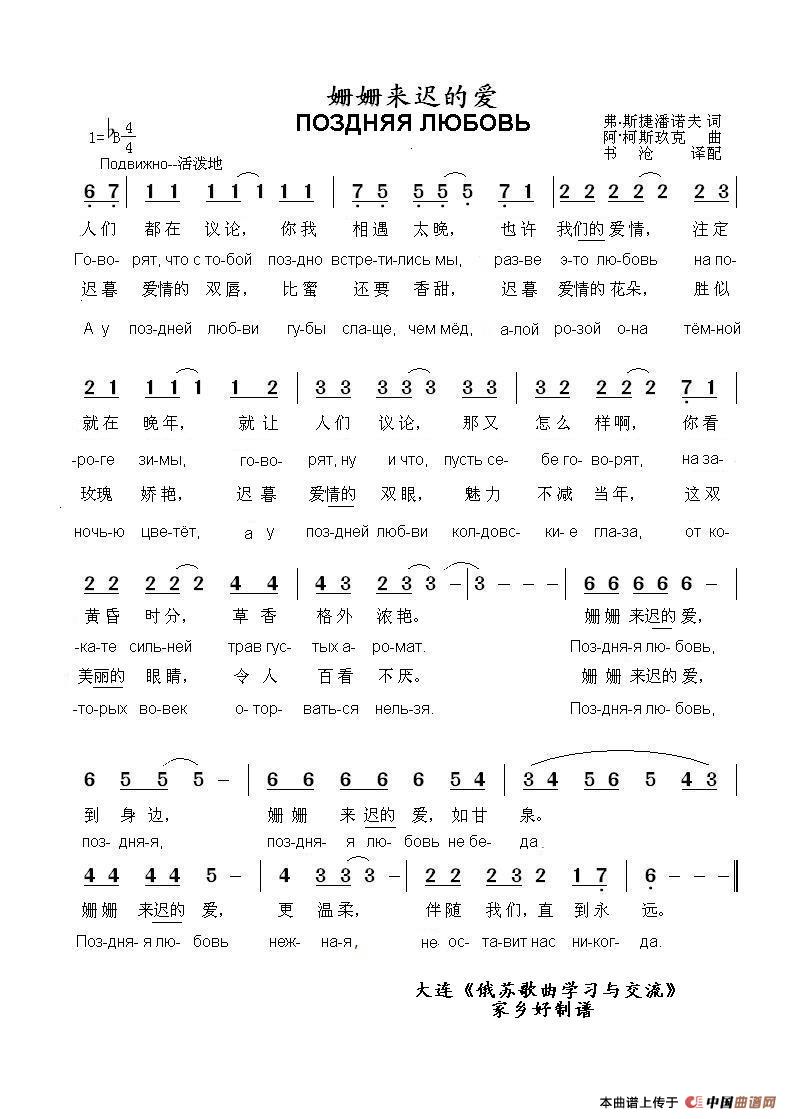 姗姗来迟的爱
ПОЗДНЯЯ ЛЮБОВЬ
1=♭B 4/4
弗·斯捷潘诺夫 词
阿·柯斯玖克 曲
书沧 译配
Подвижно--活泼地
6 7 | 1 1 1 1 1 1 1 | 7 5 5 5 5 7 1 | 2 2 2 2 2 2 3 |
人们 都在 议论, 你我 相遇 太晚, 也许 我们的 爱情, 注定
Го-во- рят, что с то-бой поз-дно встре-ти-лись мы, раз-ве э-то лю-бовь на по-
迟暮 爱情的 双唇, 比蜜 还要 香甜, 迟暮 爱情的 花朵, 胜似
А у поз-дней люб-ви гу-бы сла-ще, чем мёд, а-лой ро-зой о-на тём-ной
2 1 1 1 1 1 2 | 3 3 3 3 3 3 3 | 3 2 2 2 2 7 1 |
就在 晚年, 就让 人们 议论, 那又 怎么 样啊, 你看
-ро-ге зи-мы, го-во- рят, ну и что, пусть се- бе го-во-рят, на за-
玫瑰 娇艳, 迟暮 爱情的 双眼, 魅力 不减 当年, 这双
ночь-ю цве-тёт, а у поз-дней люб-ви кол-довс- ки-е гла-за, от ко-
2 2 2 2 2 4 4 | 4 3 2 3 3 – | 3 – – – | 6 6 6 6 6 – |
黄昏 时分, 草香 格外 浓艳。 姗姗 来迟的 爱,
-ка-те силь-ней трав гус- тых а-ро-мат. Поз-дня-я лю-бовь,
美丽的 眼睛, 令人 百看 不厌。 姗姗 来迟的 爱,
-то-рых во-век о-тор- вать-ся нель-зя. Поз-дня-я лю-бовь,
6 5 5 5 – | 6 6 6 6 6 5 4 | 3 4 5 6 5 4 3 |
到 身边, 姗姗 来 迟的 爱, 如甘 泉。
поз- дня-я, поз-дня- я лю-бовь не бе- да.
4 4 4 4 5 – | 4 3 3 3 – | 2 2 2 3 2 1 7 | 6 – – ‖
姗姗 来迟的 爱, 更 温柔, 伴随 我们, 直 到永 远。
Поз-дня- я лю-бовь неж- на-я, не ос- та-вит нас ни-ког- да.
大连《俄苏歌曲学习与交流》
家乡好制谱
本曲谱上传于 中国曲谱网